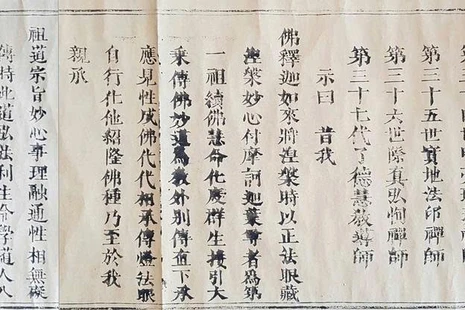 第三十五世寶地法印禪師
第三十六世際真弘恂禪師
第三十七代了德慧藏導師
示曰 昔我
佛釋迦如來將涅槃時以正法眼藏
涅槃妙心付摩訶迦葉尊者為第
一祖續佛慧命化度群生接引大
乘傳佛妙道為教外別傳直下承
應見性成佛代代相承傳燈法眼
自行化他紹隆佛種乃至於我
親承
祖道宗旨妙心事理融通性相無礙
傳持此道弘法利生命學道人人